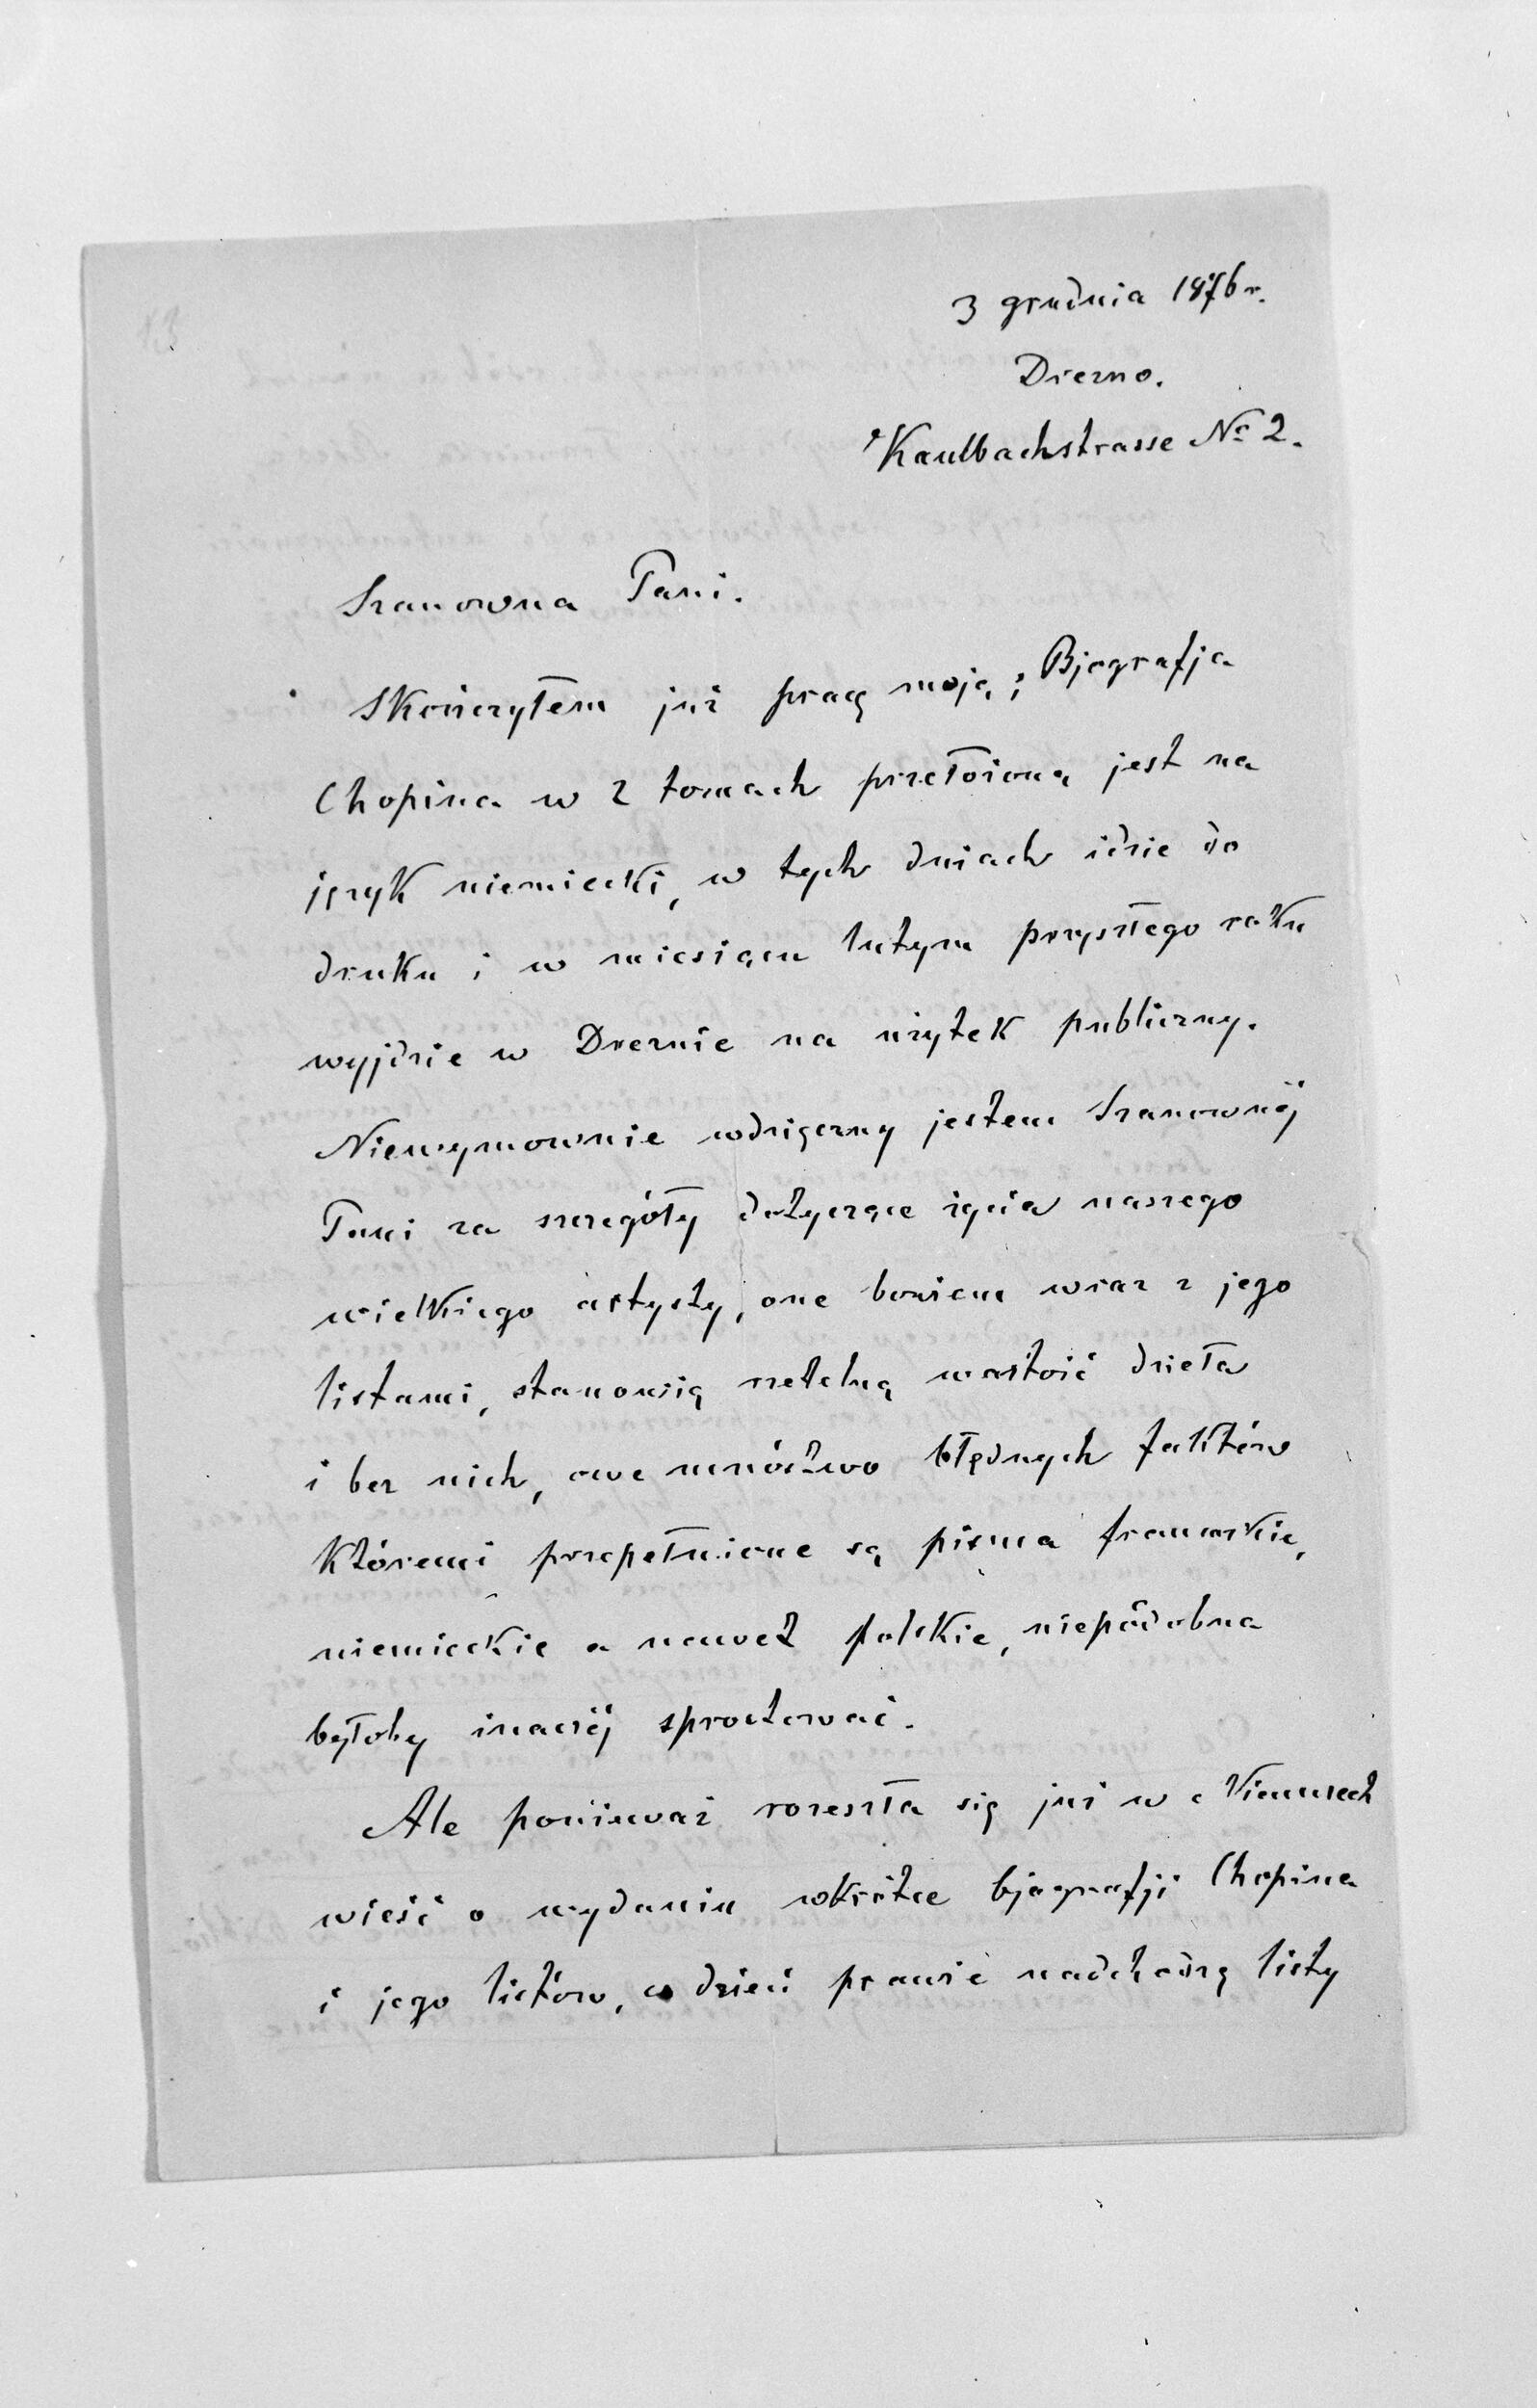 3 grudnia 1876 r.
Drezno.
Kaulbachstrasse No 2.
Szanowna Pani.
Skończyłem już pracę moję; Bjografja
Chopina w 2 tomach przełożoną jest na
język niemiecki, w tych dniach idzie do
druku i w miesiącu lutym przyszłego roku
wyjdzie w Dreznie na użytek publiczny.
Niewymownie wdzięczny jestem Szanownéj
Pani za szczegóły dotyczące życia naszego
wielkiego artysty, one bowiem wraz z jego
listami, stanowią rzetelną wartość dzieła
i bez nich, owe mnóztwo błędnych faktów
któremi przepełnione są pisma francuskie,
niemieckie a nawet polskie, niepodobna
byłoby inaczéj sprostować.
Ale ponieważ rozeszła się już w Niemczech
wieść o wydaniu wkrótce bjografji Chopina
i jego listów, co dzień prawie nadchodzą listy